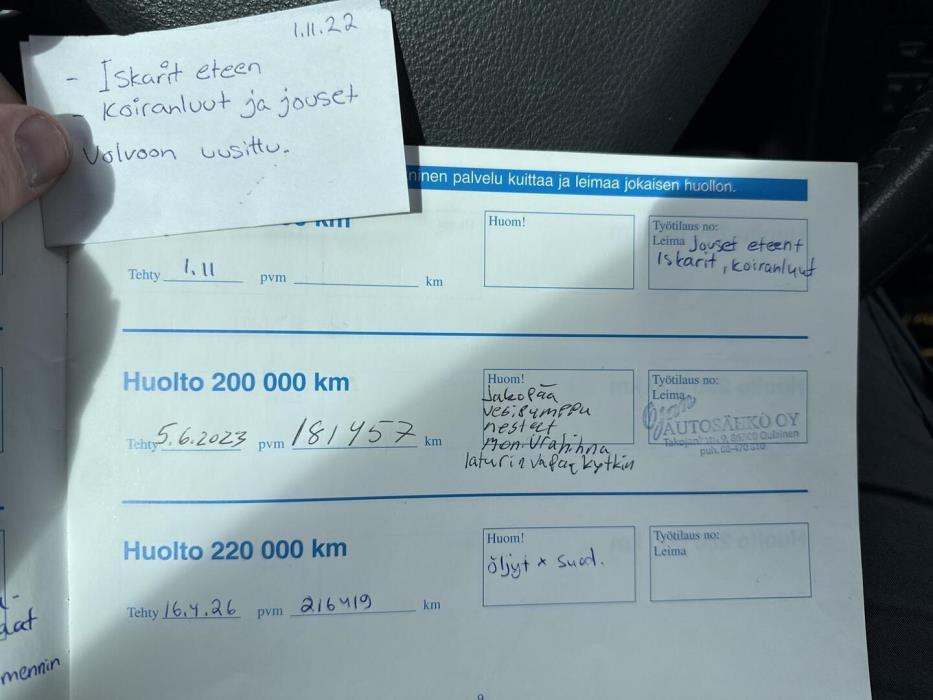 1.11.22
- Iskarit eteen
- Koiranluut ja jouset
Volvoon uusittu.
ninen palvelu kuittaa ja leimaa jokaisen huollon.
km
Tehty 1.11 pvm km
Huom!
Työtilaus no:
Leima Jouset eteen+
Iskarit, koiranluut
Huolto 200 000 km
Tehty 5.6.2023 pvm 181457 km
Huom!
Jakopää
vesipumppu
nesteet
Mon.Urahihna
laturin vapaakytkin
Työtilaus no:
Leima
AUTOSÄHKÖ OY
Oulainen
Huolto 220 000 km
Tehty 16.4.26 pvm 216419 km
Huom!
öljyt + suod.
Työtilaus no:
Leima
mennin
9